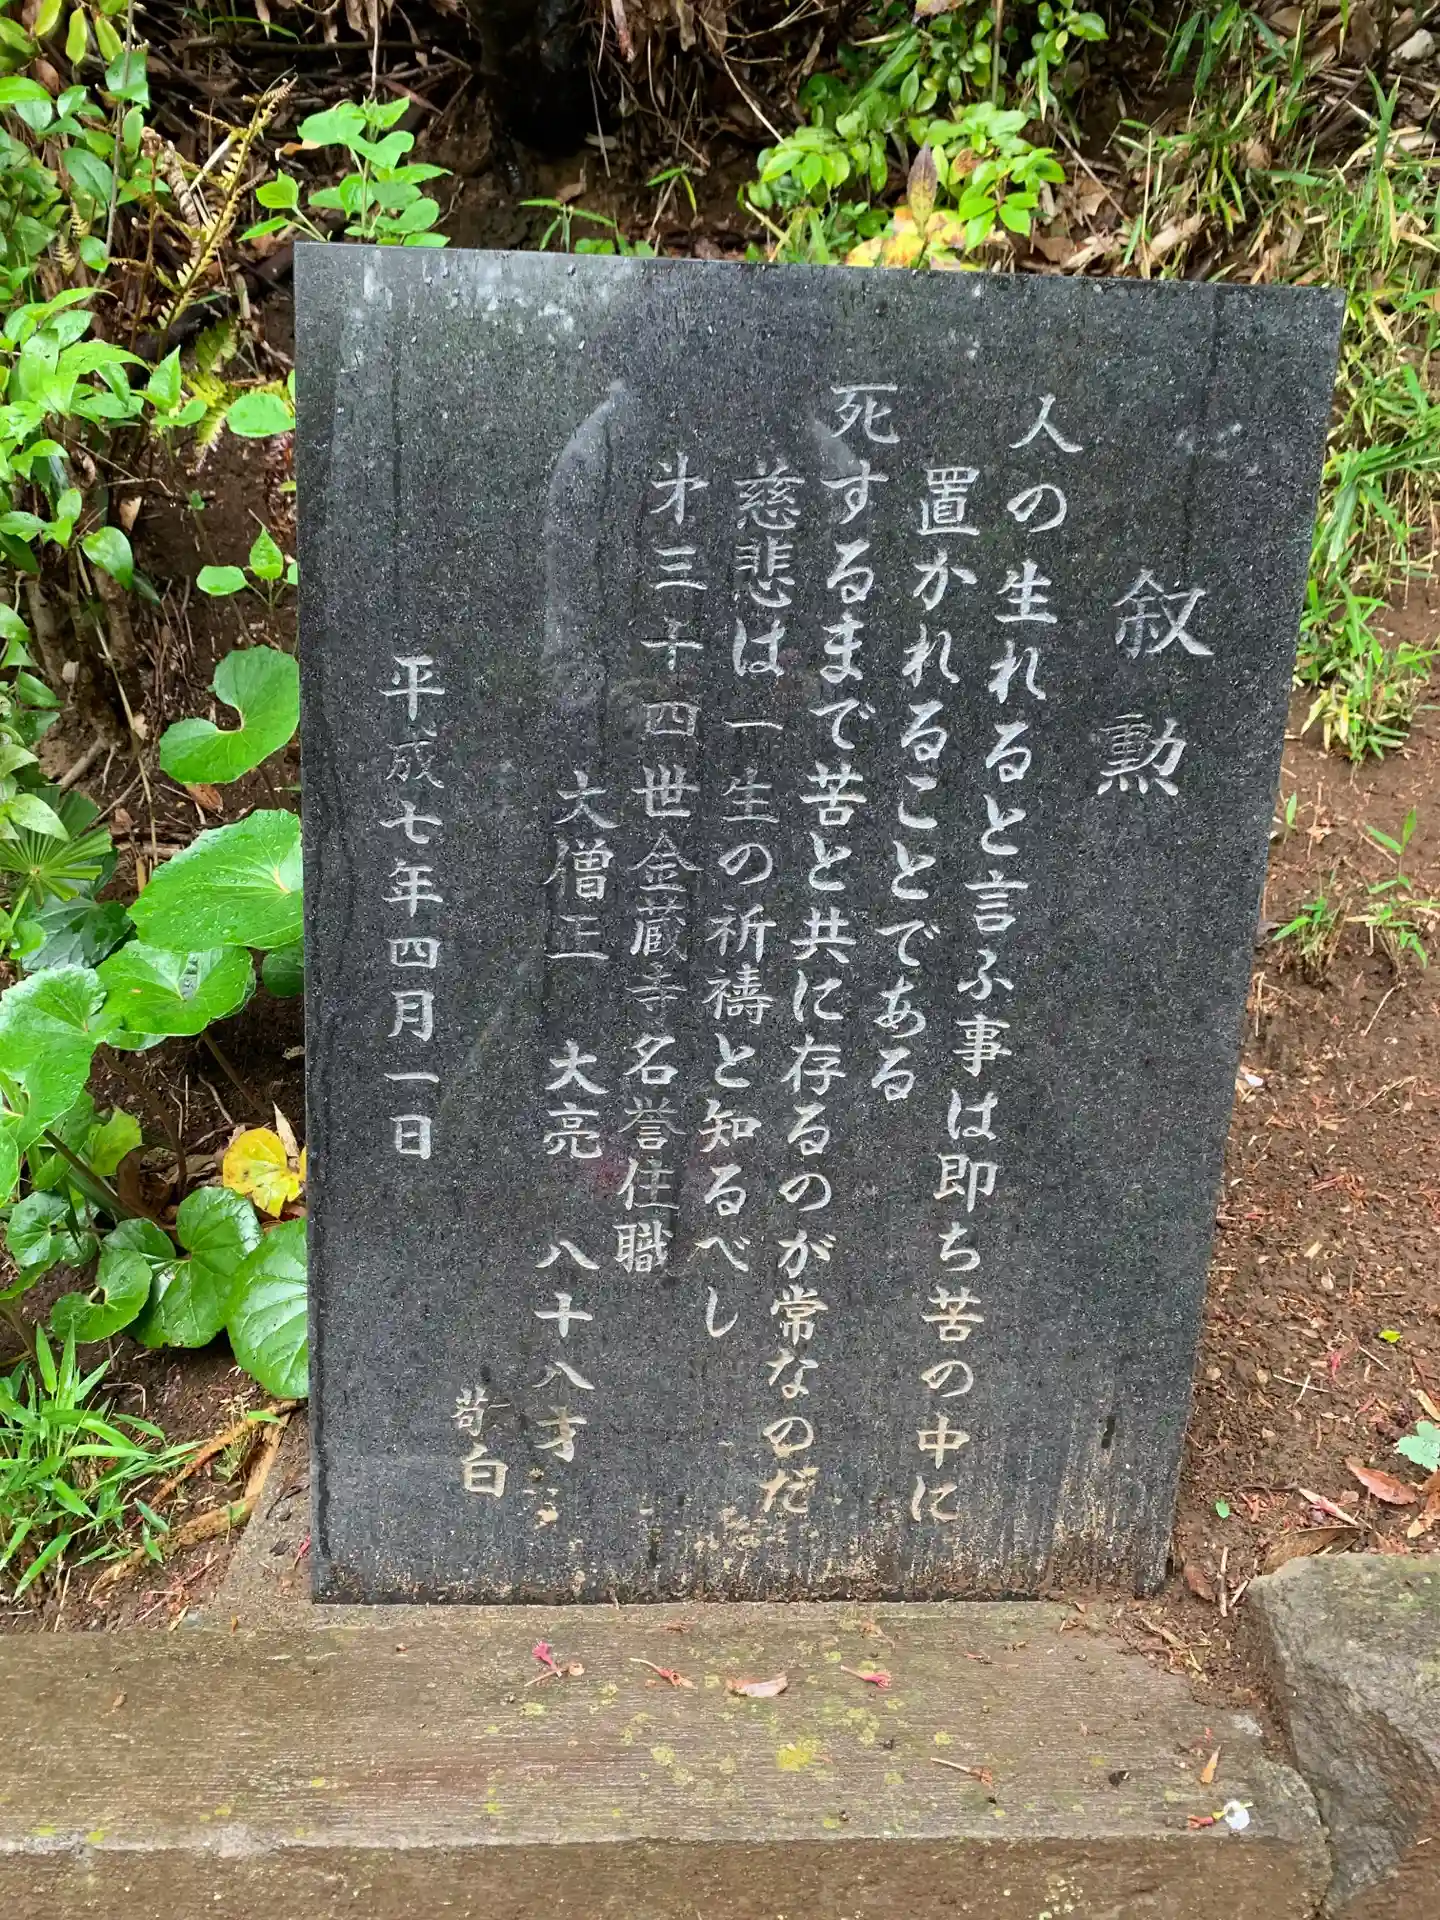 叙勲
人の生れると言ふ事は即ち苦の中に
置かれることである
死するまで苦と共に存るのが常なのだ
慈悲は一生の祈禱と知るべし
㐧三十四世金蔵寺名誉住職
大僧正 大亮 八十八才
苟白
平成七年四月一日